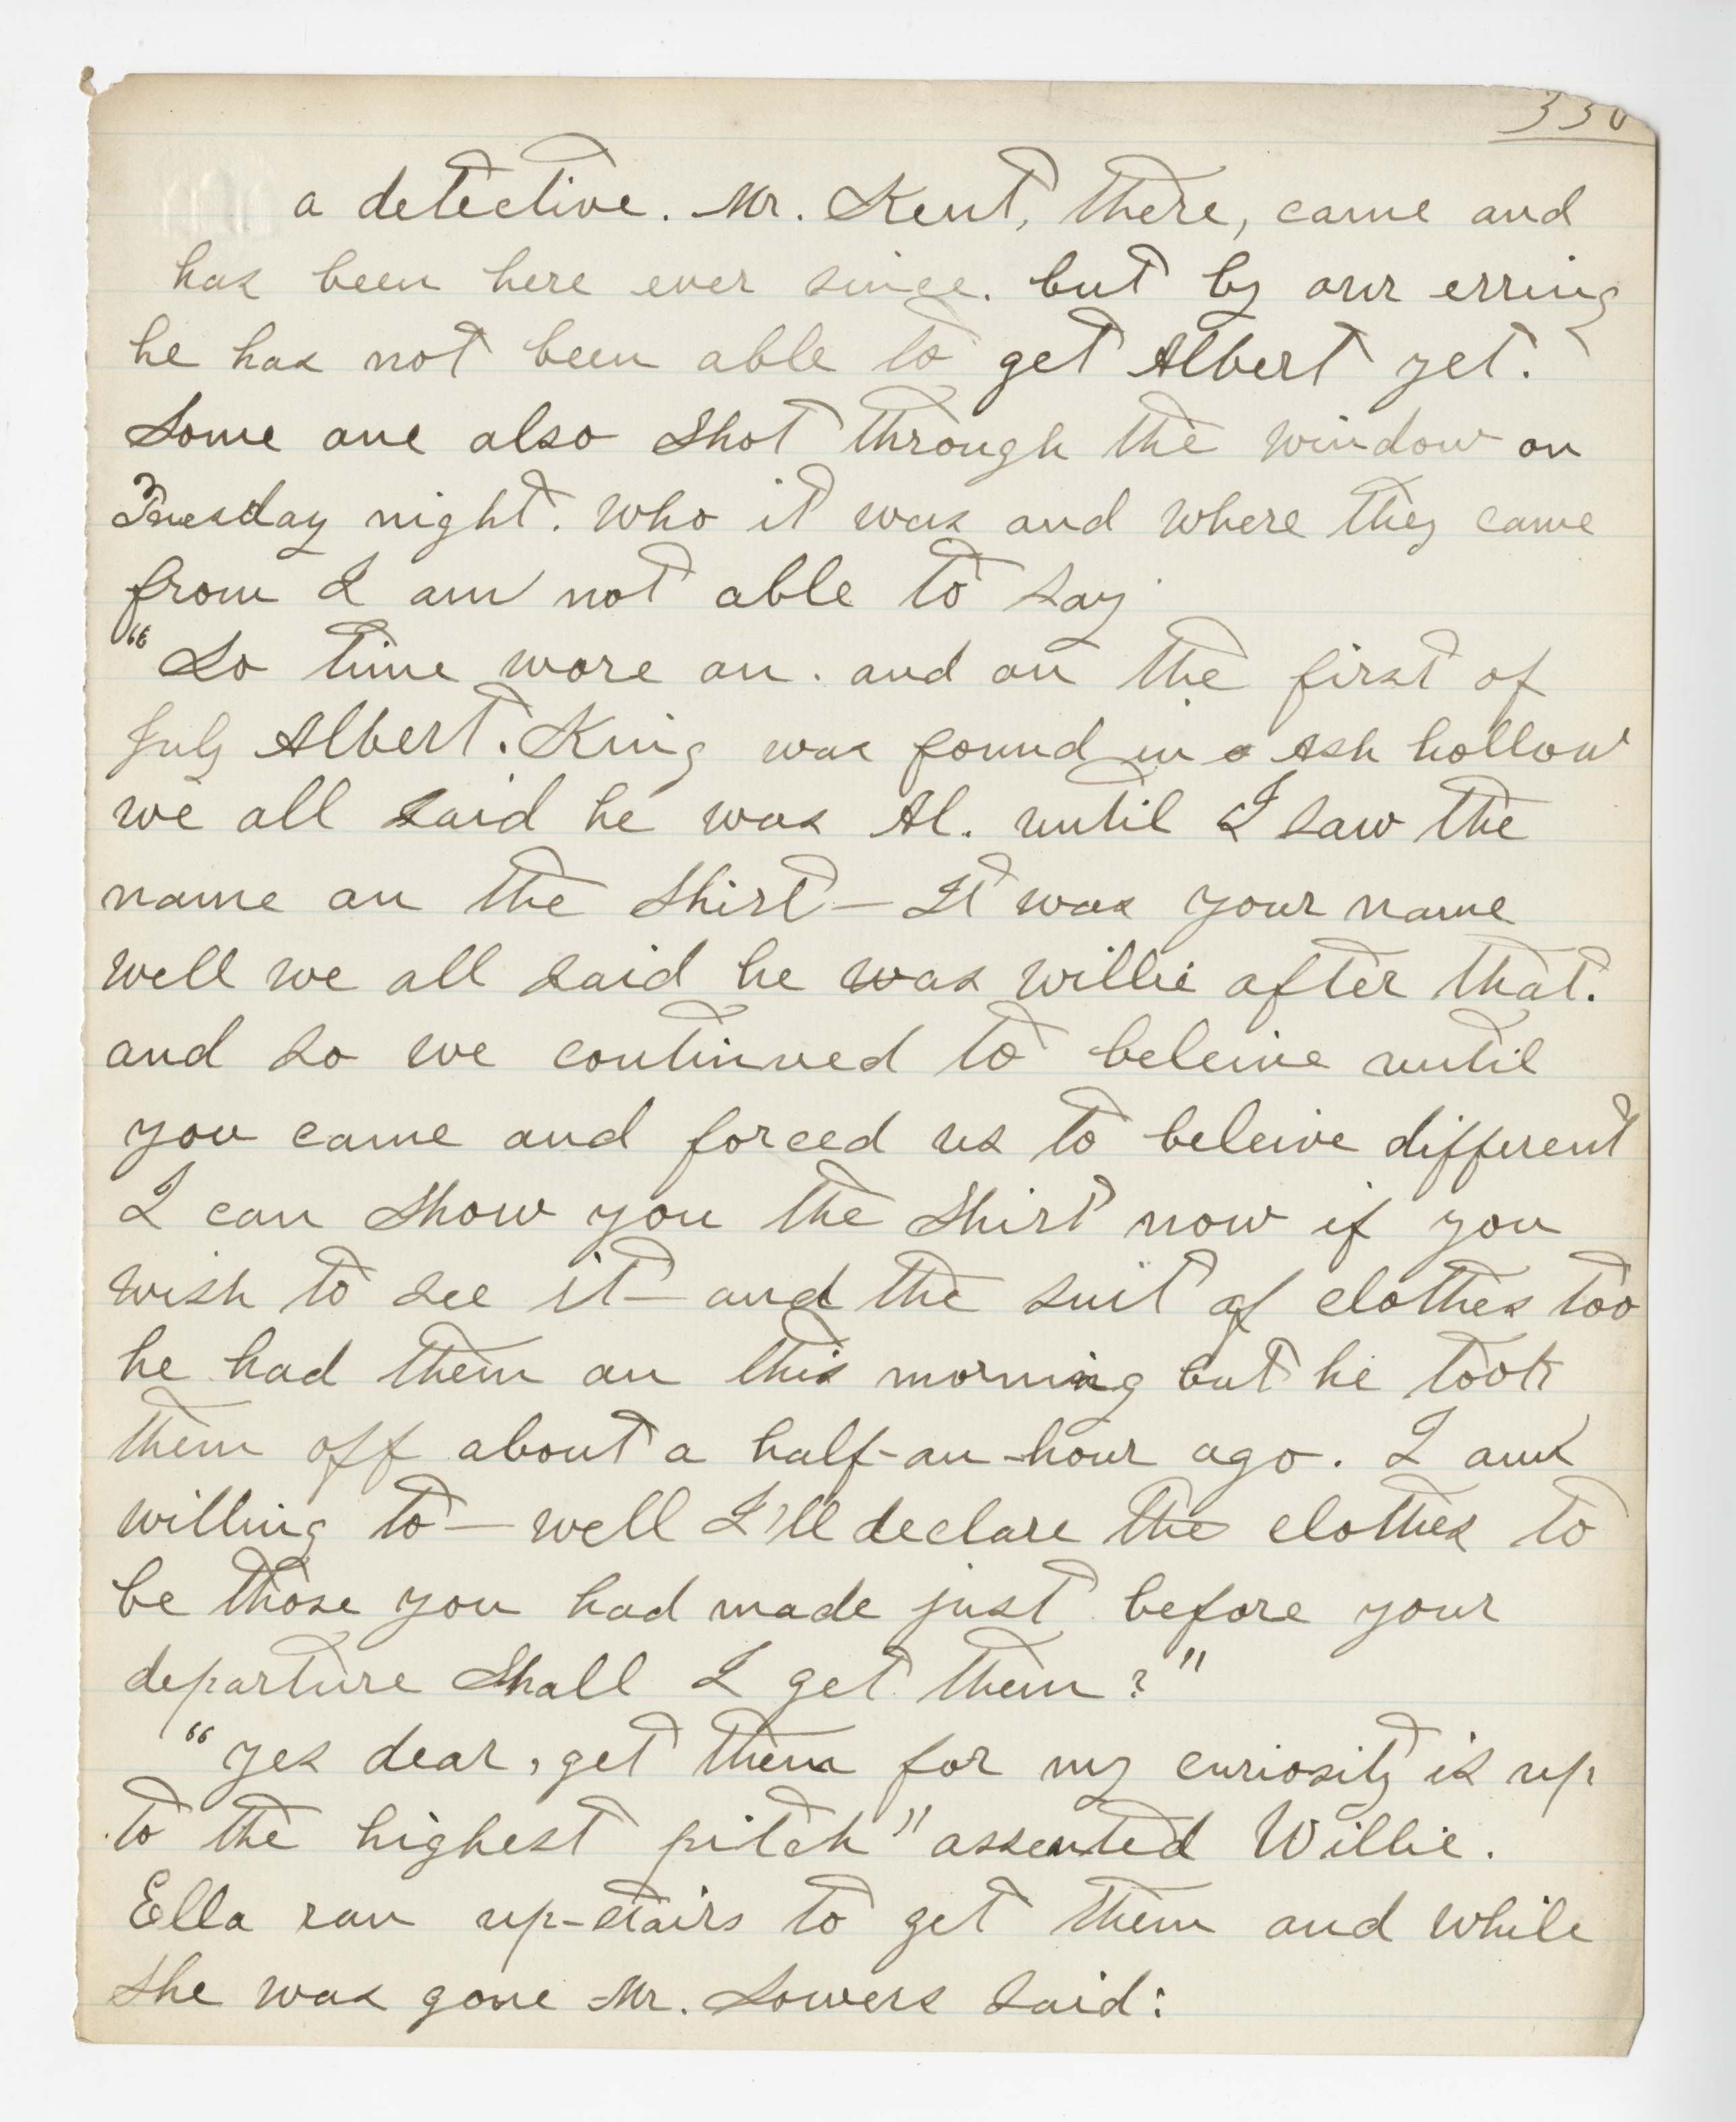 330
a detective. Mr. Kent, there, came and
has been here ever since. but by our erring
he has not been able to get Albert yet.
Some one also shot through the window on
Tuesday night. who it was and where they came
from I am not able to say
"So time wore on. and on the first of
July Albert. King was found in a Ash hollow
we all said he was Al. until I saw the
name on the shirt — It was your name
well we all said he was willie after that.
and so we continued to beleive until
you came and forced us to beleive different
I can show you the shirt now if you
wish to see it — and the suit of clothes too
he had them on this morning but he took
them off about a half-an-hour ago. I am
willing to — well I'll declare the clothes to
be those you had made just before your
departure Shall I get them?"
"yes dear, get them for my curiosity is up
to the highest pitch" assented Willie.
Ella ran up-stairs to get them and while
she was gone Mr. Sowers said: